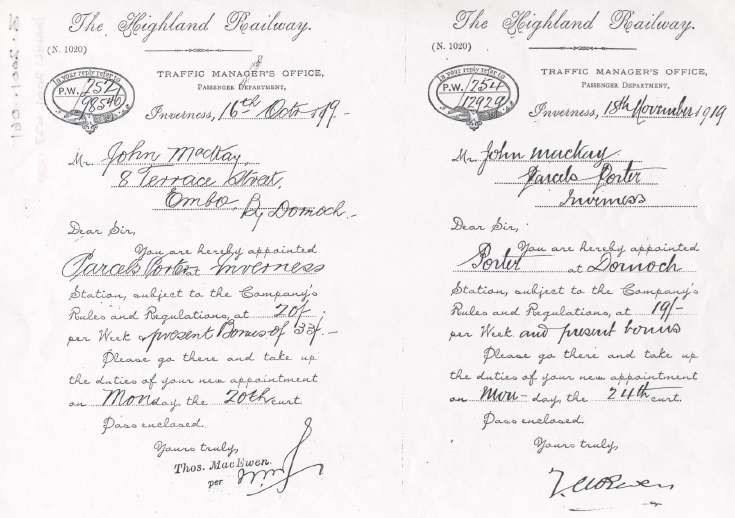 The Highland Railway.
(N. 1020)
In your reply refer to
P.W. 252
98546
TRAFFIC MANAGER'S OFFICE,
PASSENGER DEPARTMENT,
Inverness, 16th Octr 1919.
Mr John Mackay,
8 Terrace Street,
Embo
By Dornoch.
Dear Sir,
You are hereby appointed
Parcels Porter Inverness
Station, subject to the Company's
Rules and Regulations, at 20/-
per Week & present Bonus of 33/-
Please go there and take up
the duties of your new appointment
on Monday, the 20th curt.
Pass enclosed.
Yours truly,
Thos. MacEwen.
per
The Highland Railway.
(N. 1020)
In your reply refer to
P.W. 254
12929
TRAFFIC MANAGER'S OFFICE,
PASSENGER DEPARTMENT,
Inverness, 18th November 1919
Mr John Mackay
Parcels Porter
Inverness
Dear Sir,
You are hereby appointed
Porter at Dornoch
Station, subject to the Company's
Rules and Regulations, at 19/-
per Week and present bonus
Please go there and take up
the duties of your new appointment
on Mon-day, the 24th curt.
Pass enclosed.
Yours truly,
T. McEwen